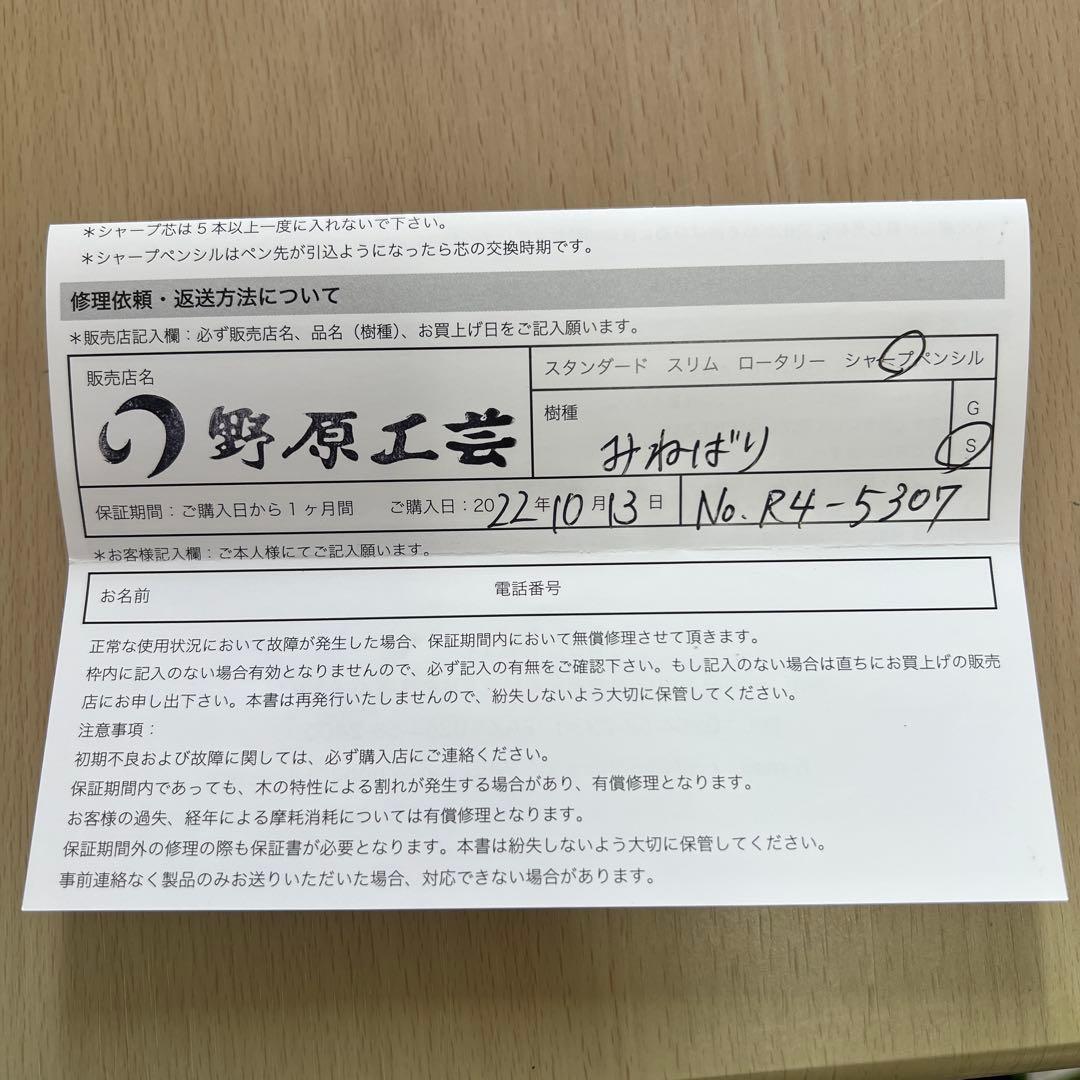 ＊シャープ芯は5本以上一度に入れないで下さい。
＊シャープペンシルはペン先が引込ようになったら芯の交換時期です。
修理依頼・返送方法について
＊販売店記入欄：必ず販売店名、品名（樹種）、お買上げ日をご記入願います。
販売店名
野原工芸
スタンダード　スリム　ロータリー　シャープペンシル
樹種
みねばり
G
S
保証期間：ご購入日から1ヶ月間　ご購入日：2022年10月13日
No. R4-5307
＊お客様記入欄：ご本人様にてご記入願います。
お名前　電話番号
正常な使用状況において故障が発生した場合、保証期間内において無償修理させて頂きます。
枠内に記入のない場合有効となりませんので、必ず記入の有無をご確認下さい。もし記入のない場合は直ちにお買上げの販売
店にお申し出下さい。本書は再発行いたしませんので、紛失しないよう大切に保管してください。
注意事項：
初期不良および故障に関しては、必ず購入店にご連絡ください。
保証期間内であっても、木の特性による割れが発生する場合があり、有償修理となります。
お客様の過失、経年による摩耗消耗については有償修理となります。
保証期間外の修理の際も保証書が必要となります。本書は紛失しないよう大切に保管してください。
事前連絡なく製品のみお送りいただいた場合、対応できない場合があります。